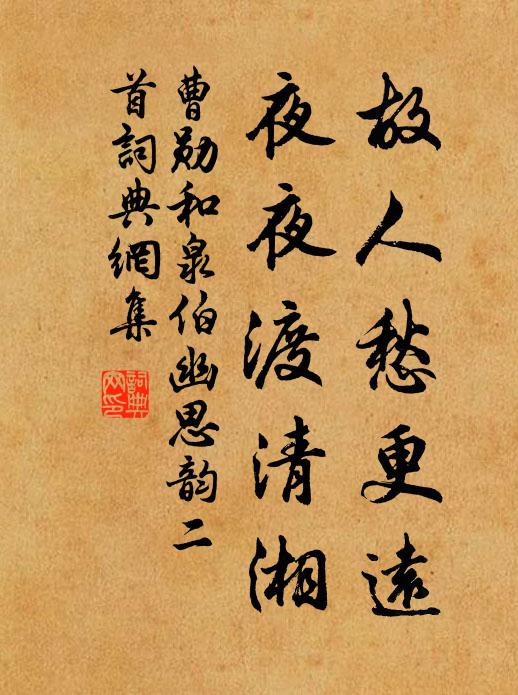 故人愁更遠
夜夜渡清湘
曹勛和泉伯幽思韵二
首詞典網集
詞典網印